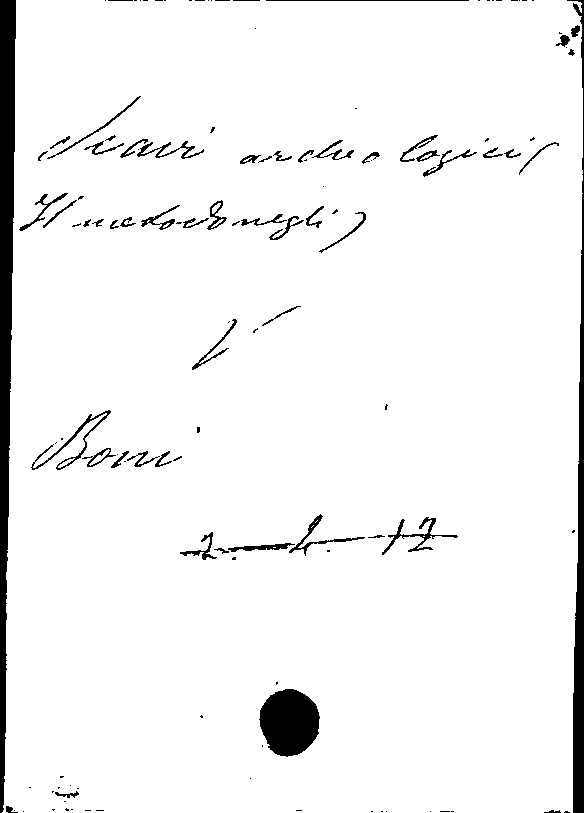 Scavi archeologici (
Il metodo negli)
V
Boni
2. 2. 12